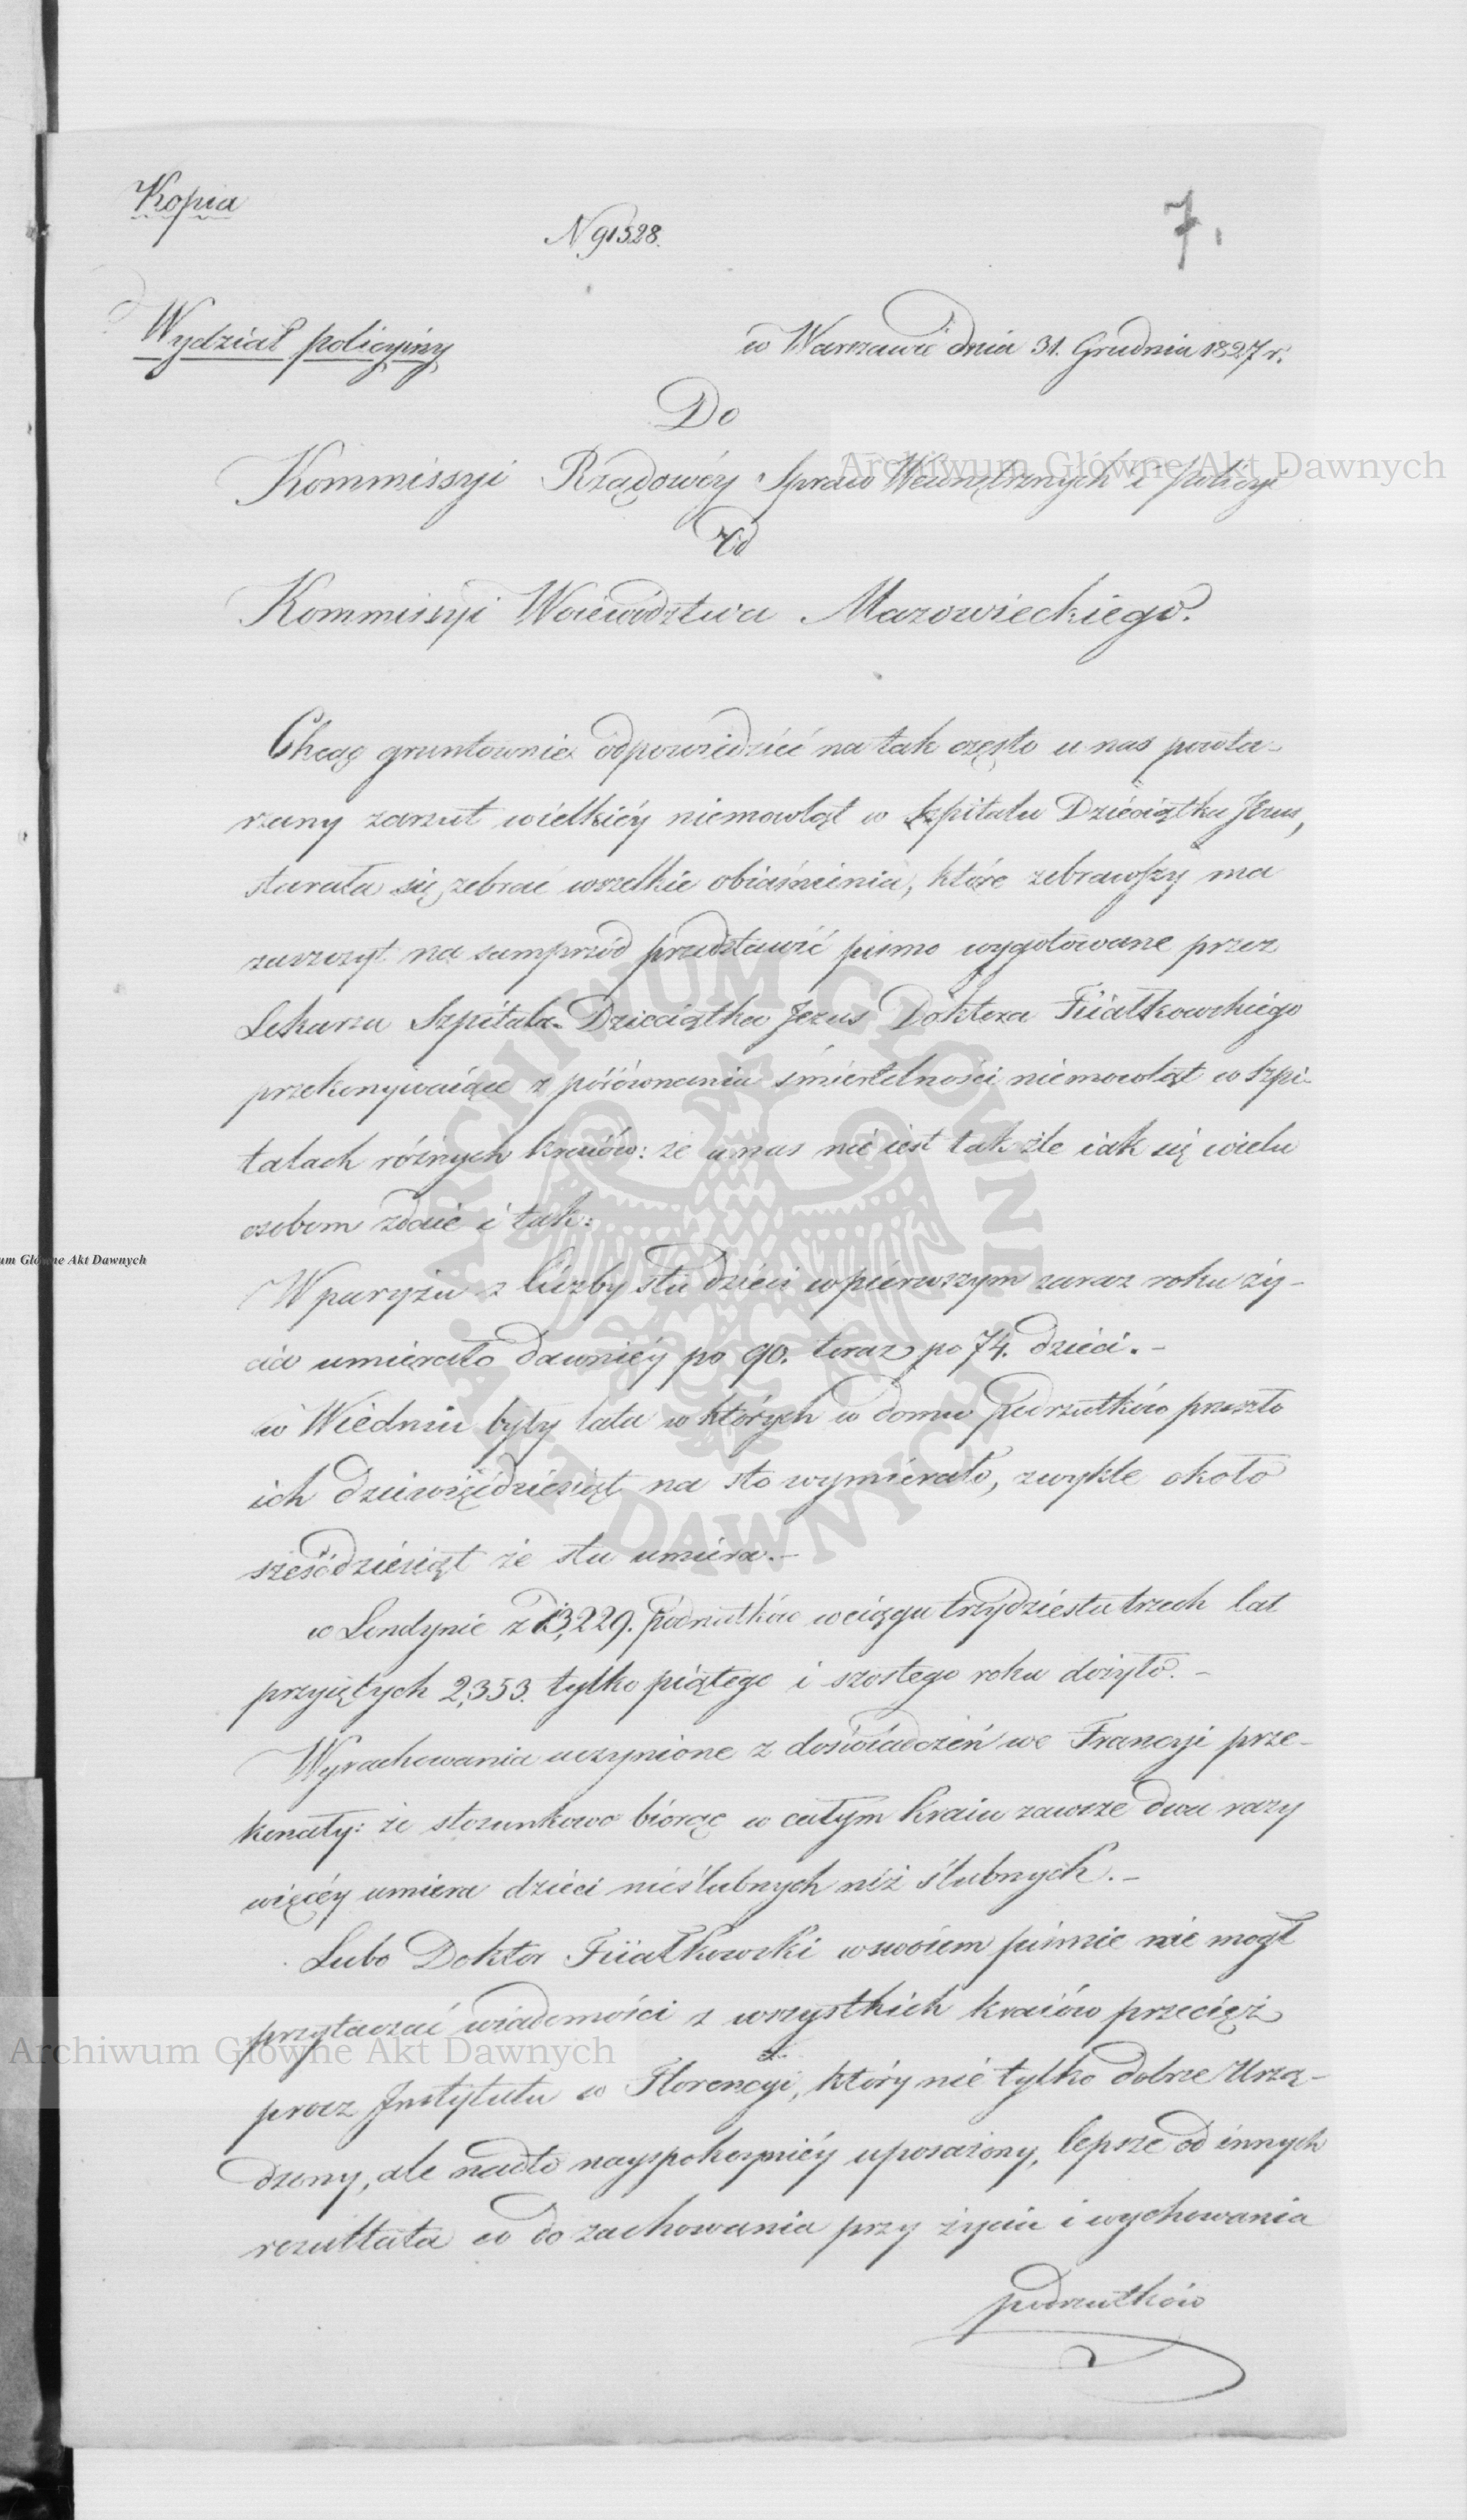 Kopia
N 91528.
7.
Wydział policyiny
w Warszawie dnia 31. Grudnia 1827 r.
Do
Kommissyi Rządowéy Spraw Wewnętrznych i Policyi
Od
Kommissyi Woiewództwa Mazowieckiego.
Chcąc gruntownie odpowiedzieć na tak często u nas powta-
rzany zarzut wielkiéy niemowląt w Szpitalu Dzieciątka Jezus,
starała się zebrać wszelkie obiaśnienia, które zebrawszy ma
zaszczyt na samprzód przedstawić pismo wygotowane przez
Lekarza Szpitala Dzieciątka Jezus Doktora Fiiałkowskiego
przekonywaiące z porównania śmiertelności niemowląt w Szpi-
talach różnych kraiów: że u nas nie iest tak źle iak się wielu
osobom zdaie i tak:
W paryżu z liczby stu dzieci w pierwszym zaraz roku ży-
cia umierało dawniéy po 90. teraz po 74. dzieci. -
w Wiedniu były lata w których w domu podrzutków przeszło
ich dziewięćdziesiąt na sto wymierało, zwykle około
sześćdziesiąt ze stu umiera. -
w Londynie z 13,229. podrzutków w ciągu trzydziestu trzech lat
przyiętych 2,353. tylko piątego i szostego roku dożyło. -
Wyrachowania uczynione z doświadczeń we Francyi prze-
konały: że stosunkowo biorąc w całym kraiu zawsze dwa razy
więcéy umiera dzieci nieślubnych niż ślubnych. -
Lubo Doktor Fiiałkowski w swoiem piśmie nie mógł
przytaczać wiadomości z wszystkich kraiów przecięż
procz Instytutu w Florencyi, który nie tylko dobrze urzą-
dzony, ale nadto uposażony, lepsze od innych
rezultata co do zachowania przy życiu i wychowania
podrzutków
Archiwum Główne Akt Dawnych
um Główne Akt Dawnych
ARCHIWUM GŁÓWNE AKT DAWNYCH
Archiwum Główne Akt Dawnych